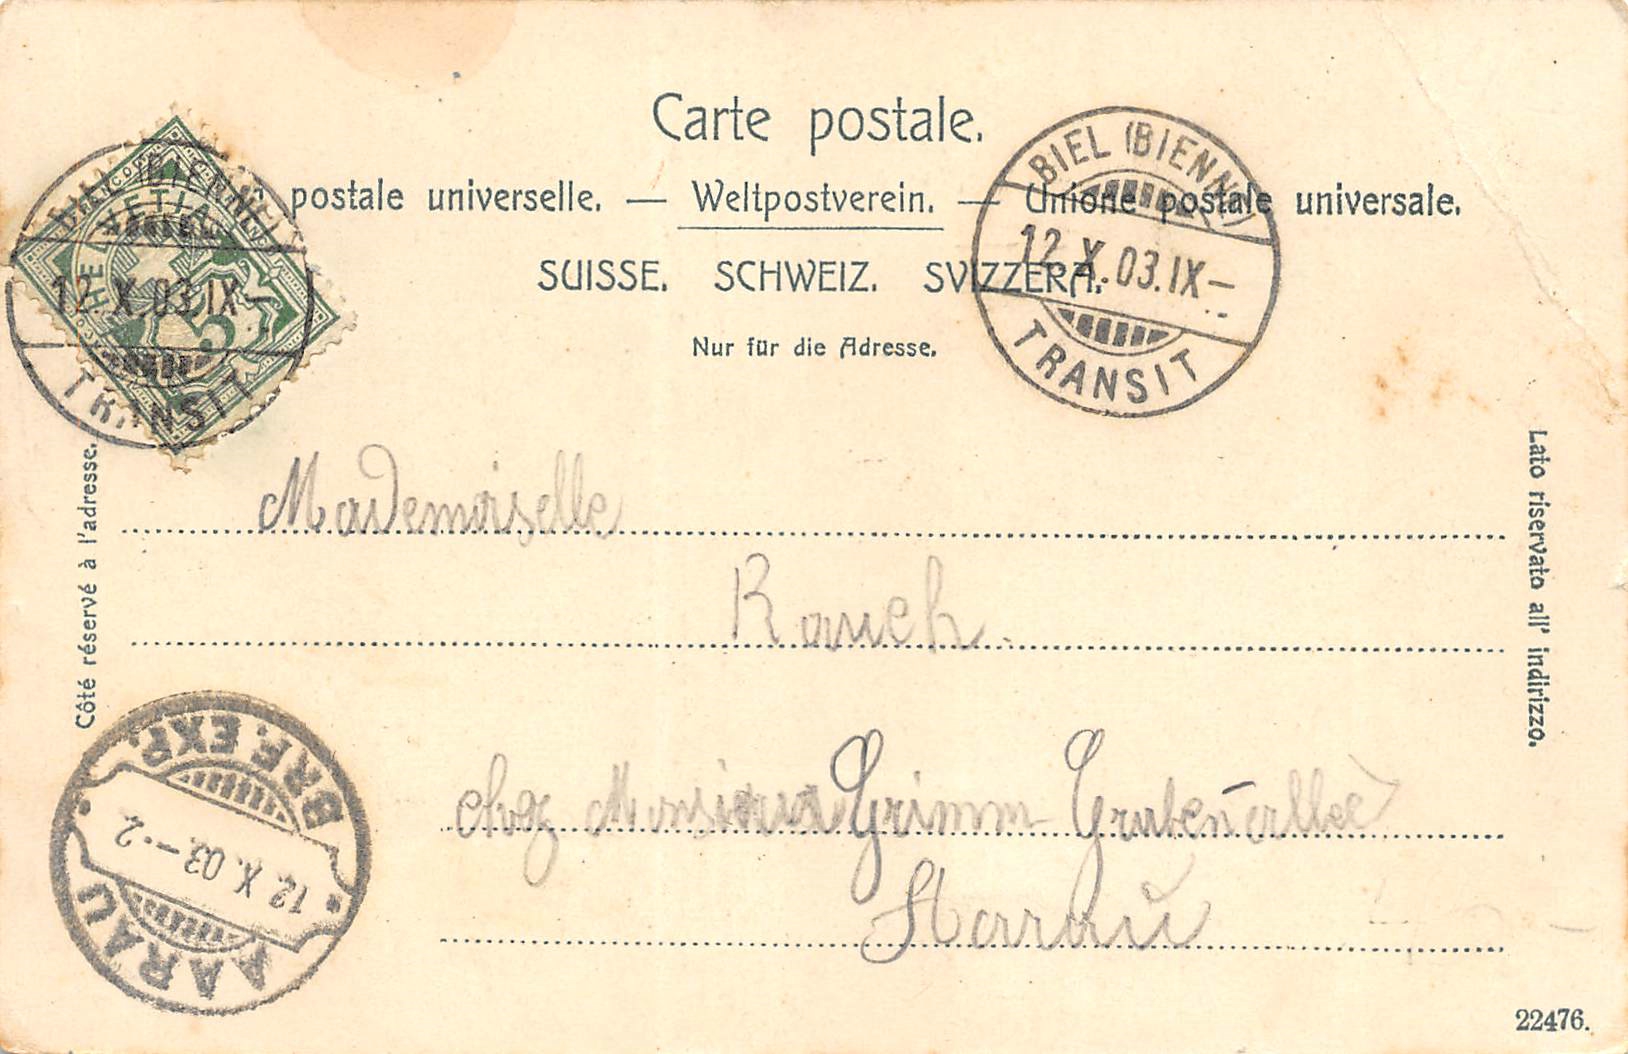 Carte postale.
postale universelle. — Weltpostverein. — Unione postale universale.
SUISSE. SCHWEIZ. SVIZZERA.
Nur für die Adresse.
BIEL (BIENNE)
12.X.03.IX–
TRANSIT
BIEL (BIENNE)
12.X.03.IX–
TRANSIT
HELVETIA
FRANCO
5
Côté réservé à l'adresse.
Lato riservato all' indirizzo.
Mademoiselle
Rauch.
chez Grimm
Aarau
AARAU
12.X.03.–2
BRF. EXP.
22476.